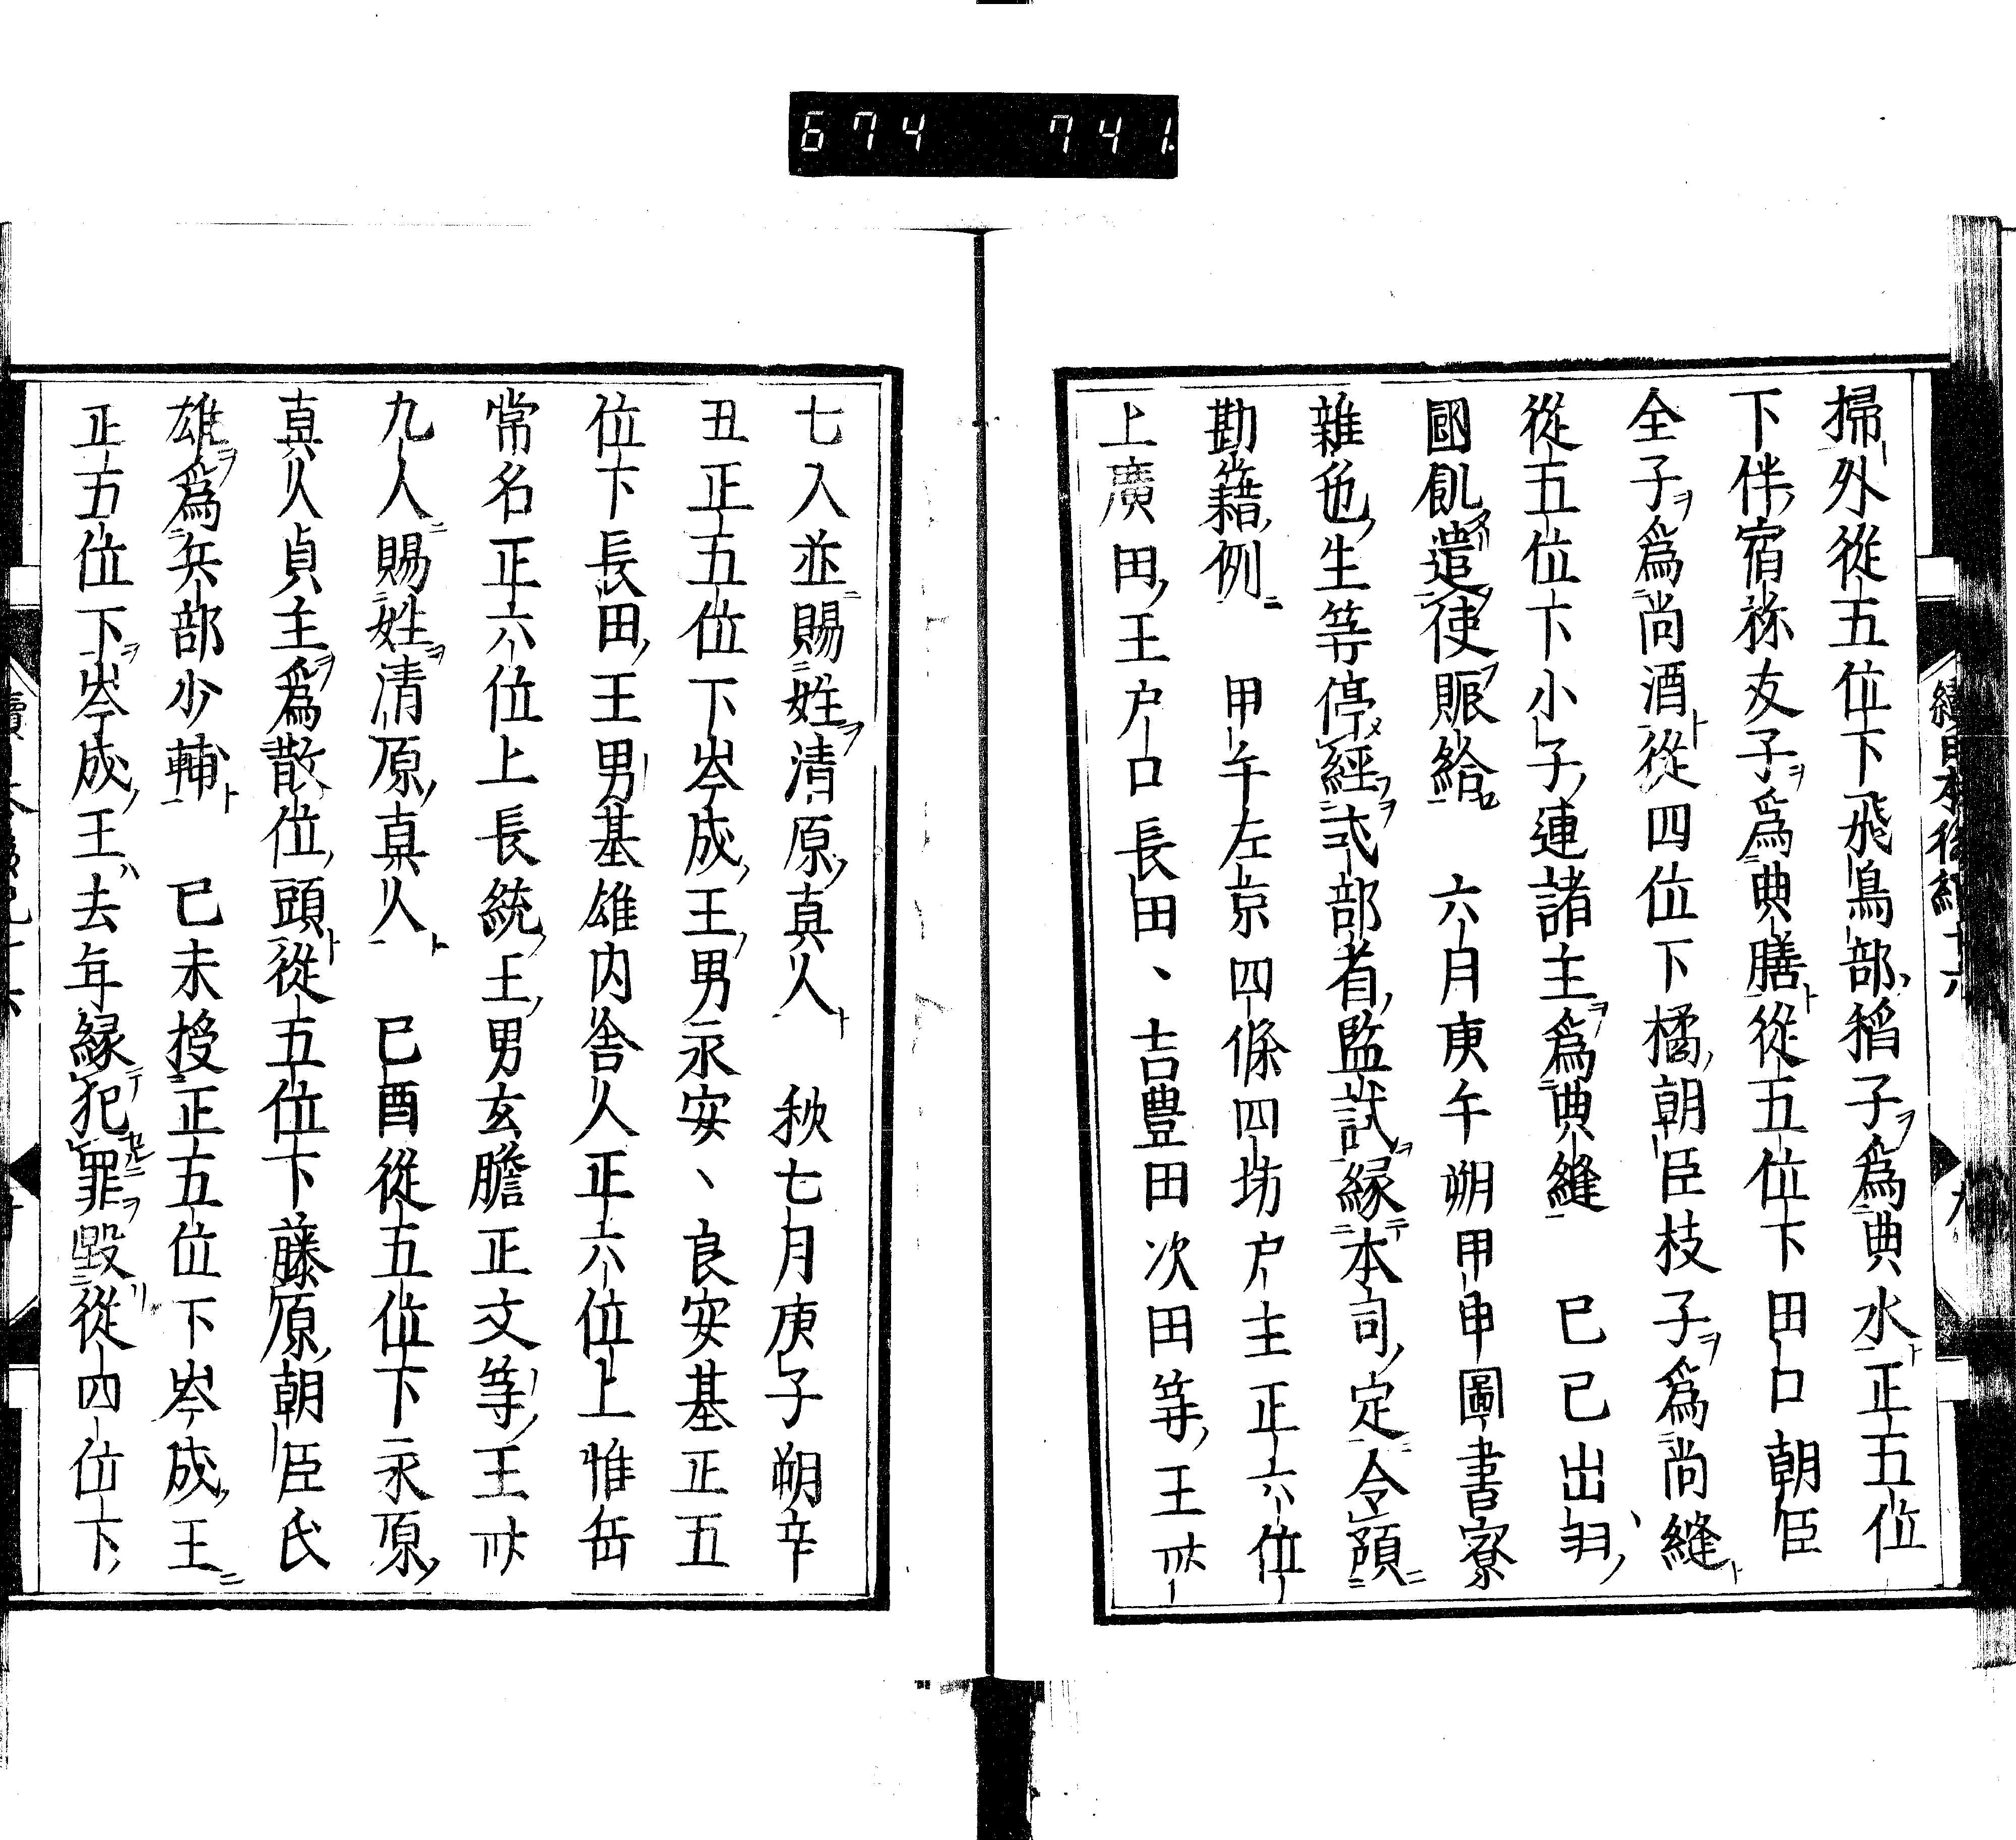 674 741
掃外從五位下飛鳥部稻子爲典水正五位
下伴宿祢友子爲典膳從五位下田口朝臣
全子爲尚酒從四位下橘朝臣枝子爲尚縫
從五位下小子連諸主爲典縫　己巳出羽
國飢遣使賑給　六月庚午朔甲申圖書寮
雜色生等停經式部省監試緣本司定令預
勘籍例　甲午左京四條四坊户主正六位
上廣田王户口長田、吉豊田次田等王卌
七人並賜姓清原真人　秋七月庚子朔辛
丑正五位下岑成王男永安、良安基正五
位下長田王男基雄内舎人正六位上惟岳
常名正六位上長統王男玄膽正文等王卌
九人賜姓清原真人　已酉從五位下永原
真人貞主爲散位頭從五位下藤原朝臣氏
雄爲兵部少輔　已未授正五位下岑成王
正五位下岑成王去年緣犯罪毀從四位下